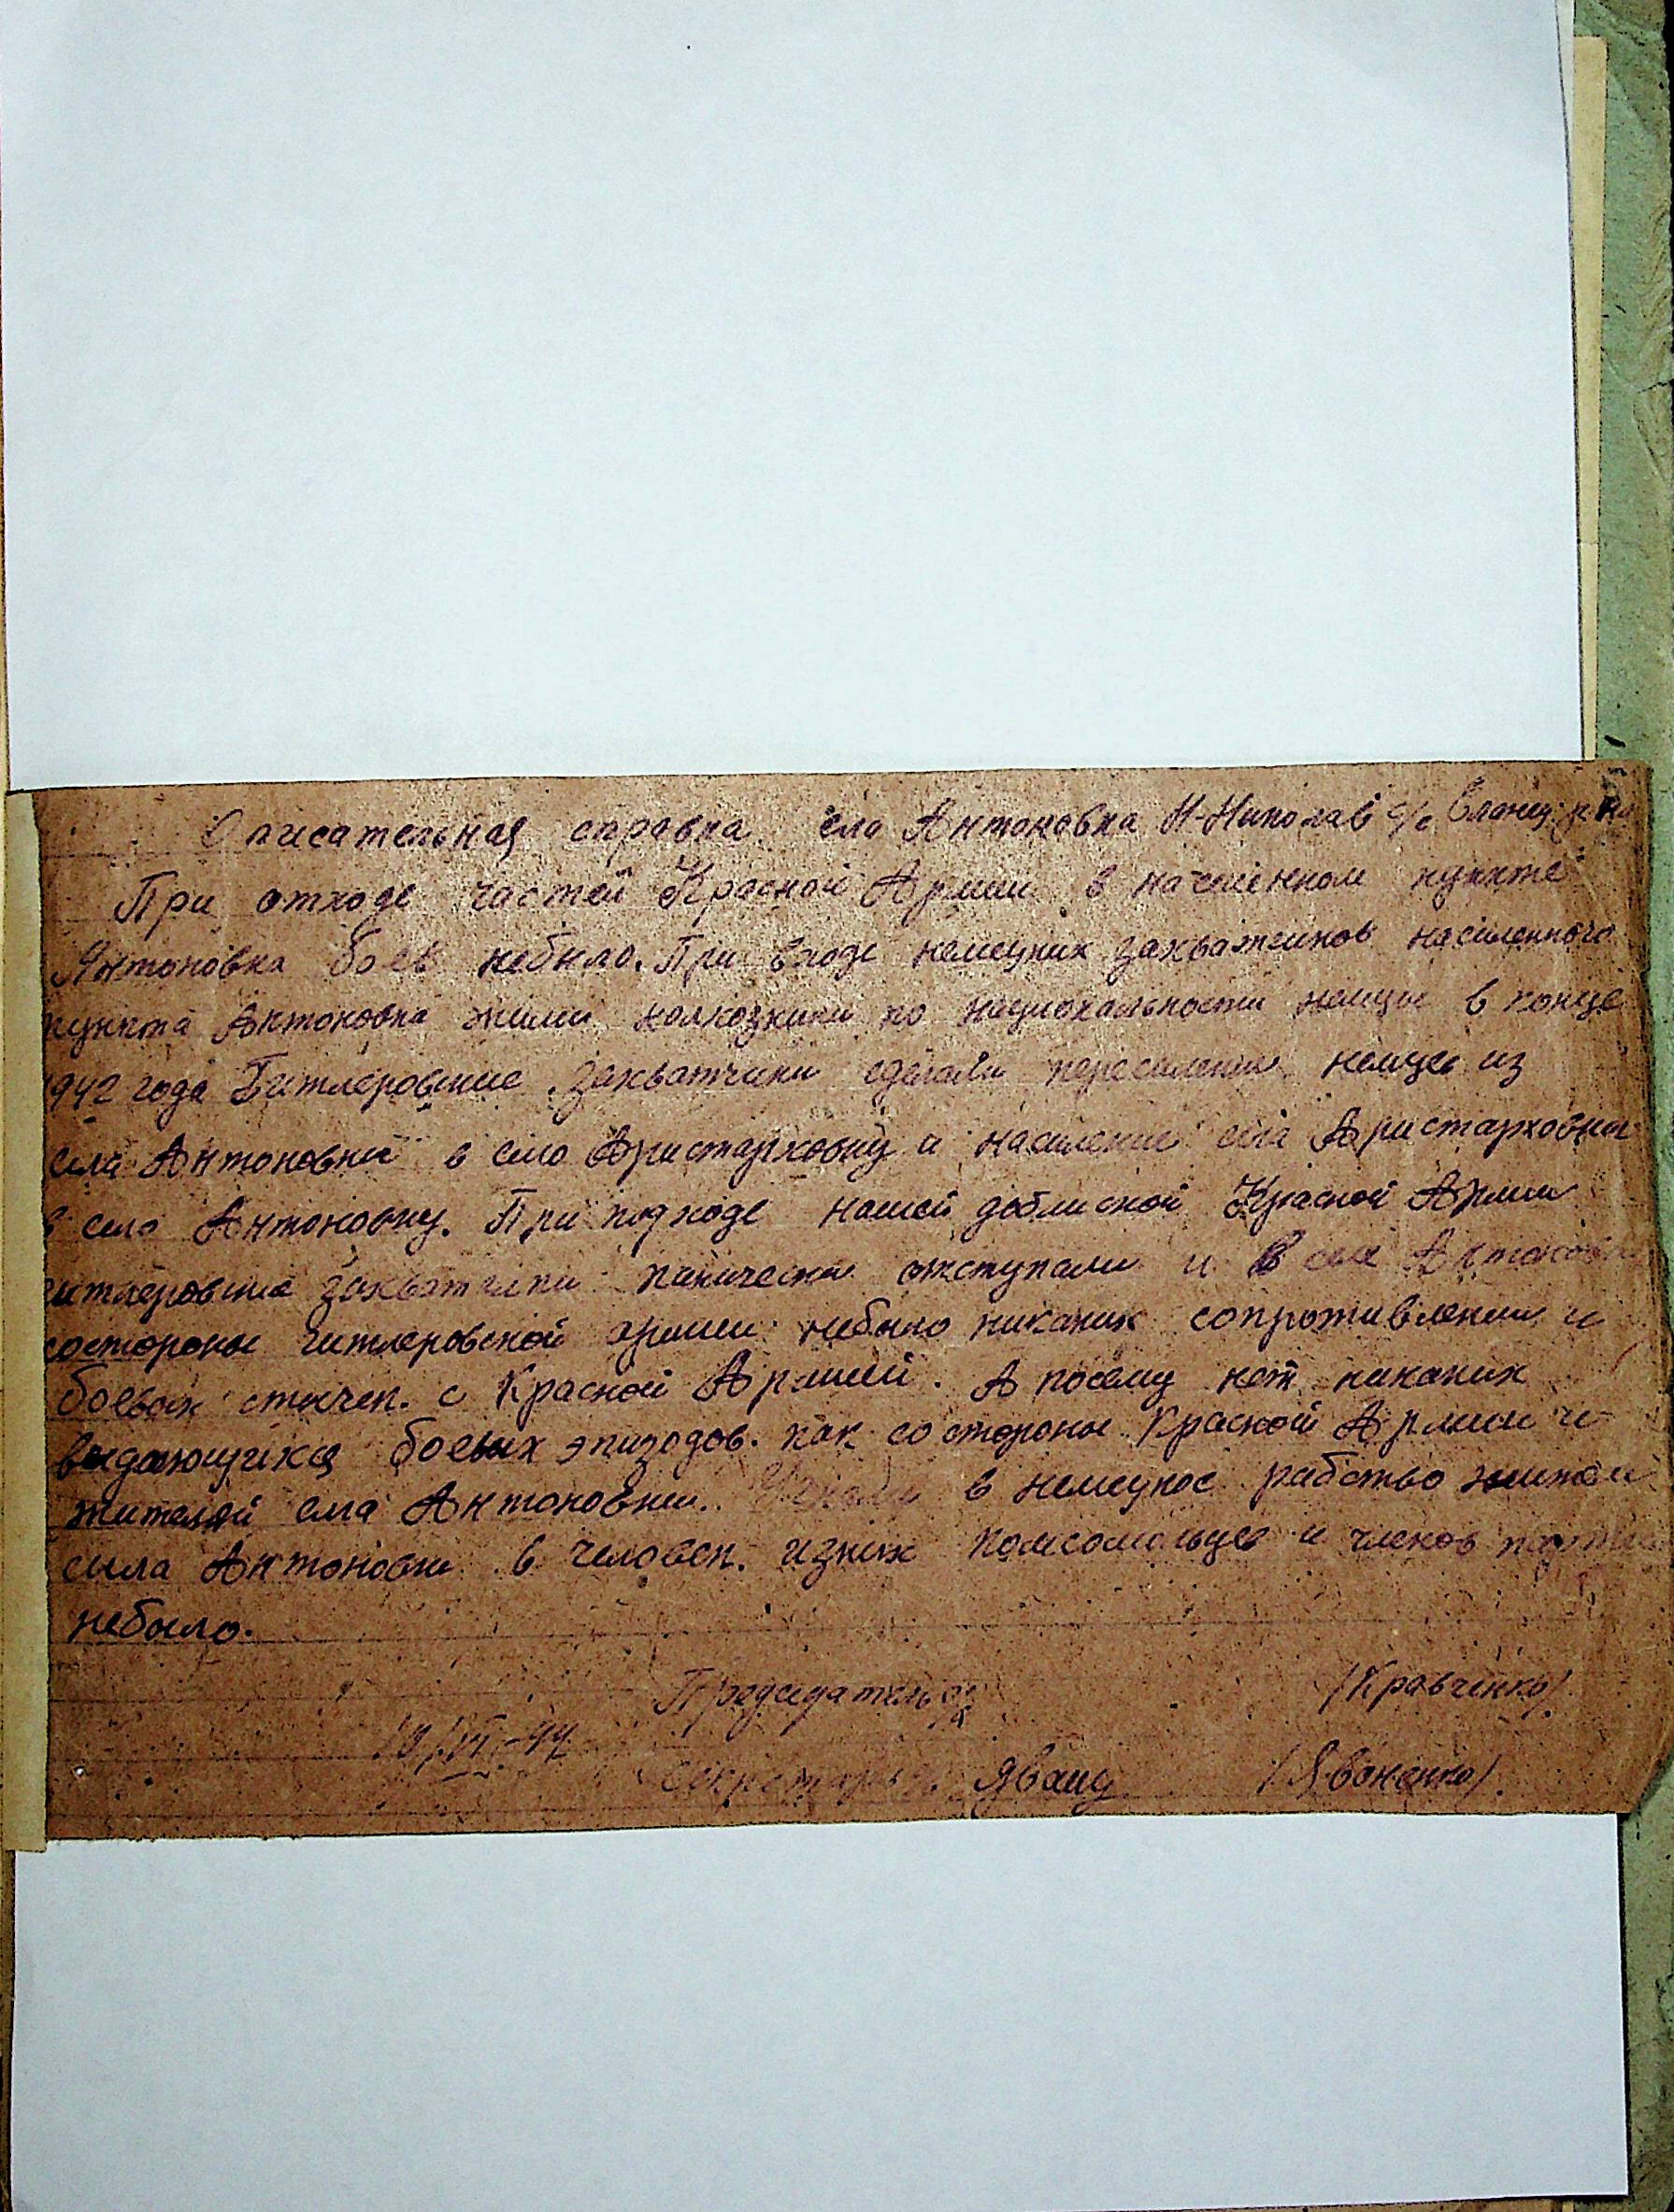 Описательная справка села Антоновка Н-Николаев с/с Еланец. р-на
При отходе частей Красной Армии в населенном пункте
Антоновка боев небыло. При входе немецких захватчиков населенного
пункта Антоновка жили колхозники по национальности немцы в конце
1942 года Гитлеровские захватчики сделали переселение немцев из
села Антоновки в село Аристарховку и население села Аристарховки
в село Антоновку. При подходе нашей доблисной Красной Армии
гитлеровские захватчики панически отступали и в селе Антоновки
состороны гитлеровской армии небыло никаких сопротивлений и
боевых стычек. с Красной Армией. А посему нет никаких
выдающихся боевых эпизодов. как со стороны Красной Армии и
жителей села Антоновки. в немецкое рабство жители
сила Антоновки 6 человек. изних комсомольцев и членов партии
небыло.
Председатель с/с (Кравченко)
44
Секретарь (Явоненко).